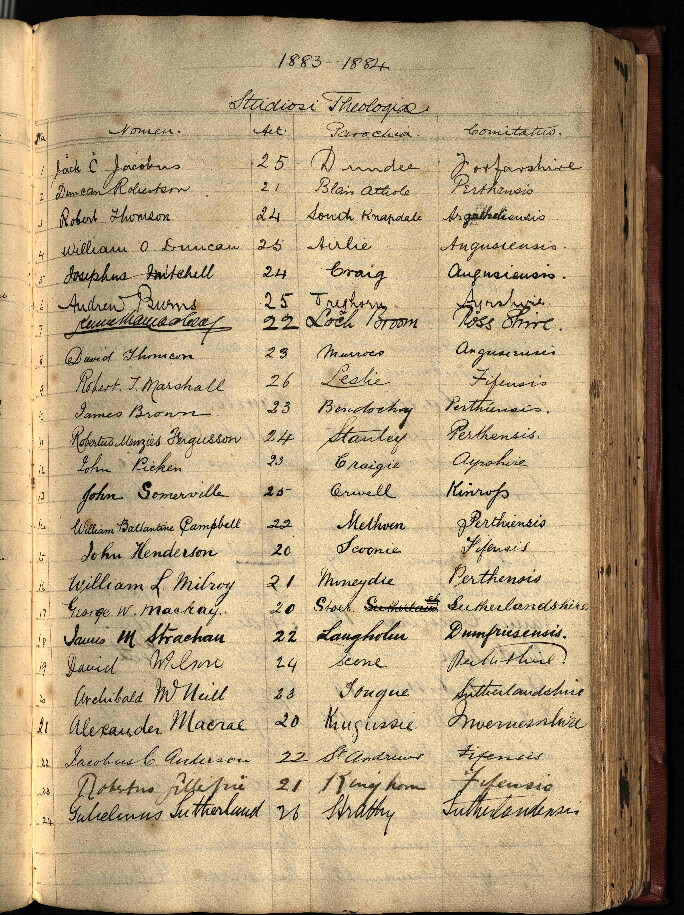 1883-1884
Studiosi Theologiæ.
No. Nomen. Aet Parochia. Comitatus.
1 Jack C Jacobus 25 Dundee Forfarshire
2 Duncan Robertson 21 Blair Athole Perthensis
3 Robert Thomson 24 South Knapdale Argatheliensis
4 William O. Duncan 25 Airlie Angusiensis.
5 Josephus Mitchell 24 Craig Angusiensis.
6 Andrew Burns 25 Treghorn Ayrshire.
7 22 Loch Broom Ross Shire.
8 David Thomson 23 Murroes Angusiensis
9 Robert T. Marshall 26 Leslie Fifensis
10 James Brown 23 Bendochy Perthensis.
11 Robertus Menzies Fergusson 24 Stanley Perthensis.
12 John Picken 23 Craigie Ayrshire
13 John Somerville 25 Orwell Kinross
14 William Ballantine Campbell 22 Methven Perthiensis
15 John Henderson 20 Scoonie Fifensis
16 William L. Milroy 21 Moneydie Perthensis
17 George W. Mackay. 20 Stoer. Sutherlandshire
18 James M Strachan 22 Langholm Dumfriesensis.
19 David Wilson 24 Scone Perthshire.
20 Archibald McNeill 23 Tongue Sutherlandshire
21 Alexander Macrae 20 Kingussie Invernessshire
22 Jacobus C. Anderson 22 St Andrews Fifensis
23 Robertus Gillespie 21 Kinghorn Fifensis
24 Gulielmus Sutherland 26 Strathy Sutherlandensis